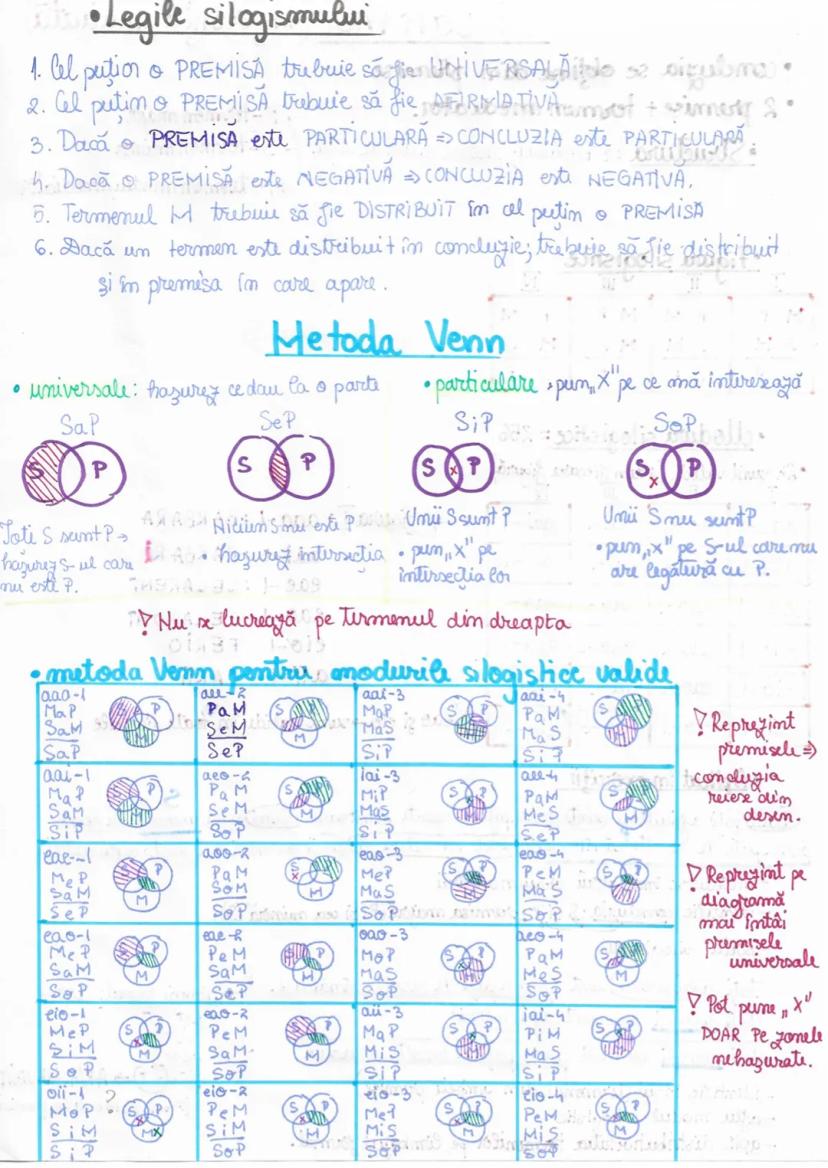 • Legile silogismului
1. Cel puțin o PREMISĂ trebuie să fie UNIVERSALĂ
2. Cel puțin o PREMISĂ trebuie să fie AFIRMATIVĂ
3. Dacă o PREMISĂ este PARTICULARĂ ⇒ CONCLUZIA este PARTICULARĂ
4. Dacă o PREMISĂ este NEGATIVĂ ⇒ CONCLUZIA este NEGATIVĂ.
5. Termenul M trebuie să fie DISTRIBUIT în cel puțin o PREMISĂ
6. Dacă un termen este distribuit în concluzie, trebuie să fie distribuit
și în premisa în care apare.
Metoda Venn
• universale: hașurez ce dau la o parte
• particulare, pun „X" pe ce mă interesează
SaP SeP SiP SoP
S P S P S P S P
x x
Toti S sunt P →
hașurez S-ul care
nu este P.
Niciun S nu este P
• hașurez intersecția
Unii S sunt P
• pun „x" pe
intersecția lor
Unii S nu sunt P
• pun „x" pe S-ul care nu
are legătură cu P.
! Nu se lucrează pe termenul din dreapta
• metoda Venn pentru modurile silogistice valide
aaa-1
MaP
SaM
SaP
S P M
aee-2
PaM
SeM
SeP
S P M
aai-3
MaP
MaS
SiP
S P
aai-4
PaM
MaS
SiP
S P
aai-1
MaP
SaM
SiP
S P
aeo-2
PaM
SeM
SoP
S P M
iai-3
MiP
MaS
SiP
S P
aee-4
PaM
MeS
SeP
S P M
eae-1
MeP
SaM
SeP
S P M
aoo-2
PaM
SoM
SoP
S P M
eao-3
MeP
MaS
SoP
S P
eao-4
PeM
MaS
SoP
S P
eao-1
MeP
SaM
SoP
S P M
eae-2
PeM
SaM
SeP
S P M
oao-3
MoP
MaS
SoP
S P
aeo-4
PaM
MeS
SoP
S P M
eio-1
MeP
SiM
SoP
S P M
eao-2
PeM
SaM
SoP
S P M
aii-3
MaP
MiS
SiP
S P
iai-4
PiM
MaS
SiP
S P
oii-1 ?
MoP
SiM
SiP
S P M
eio-2
PeM
SiM
SoP
S P M
eio-3
MeP
MiS
SoP
S P M
eio-4
PeM
MiS
SoP
S P M
! Reprezint
premisele ⇒
concluzia
reiese din
desen.
! Reprezint pe
diagramă
mai întâi
premisele
universale
! Pot pune „X"
DOAR pe zonele
nehașurate.